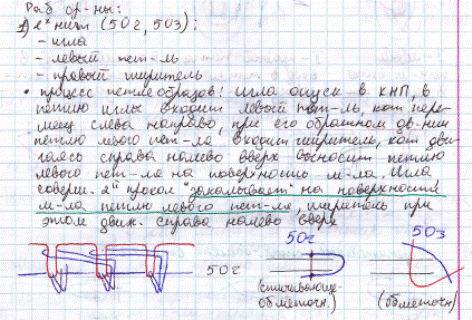 Раб. ор-ны:
1) 2х нит (50г, 503):
- игла
- левый пет-ль
- правый ширитель
• процесс петлеобразов: игла опуск в КНП, в
петлю иглы входит левый пет-ль, кот пере-
мещ слева направо, при его обратном дв-нии
петлю левого пет-ля входит ширитель, кот дви-
гаясь справа налево вверх выносит петлю
левого пет-ля на поверхность м-ла. Игла
соверш. 2й прокол "закалывает" на поверхности
м-ла петлю левого пет-ля, ширитель при
этом движ. справа налево вверх
50г
50г
503
(стачивающе-
обметочн.)
(обметочн)